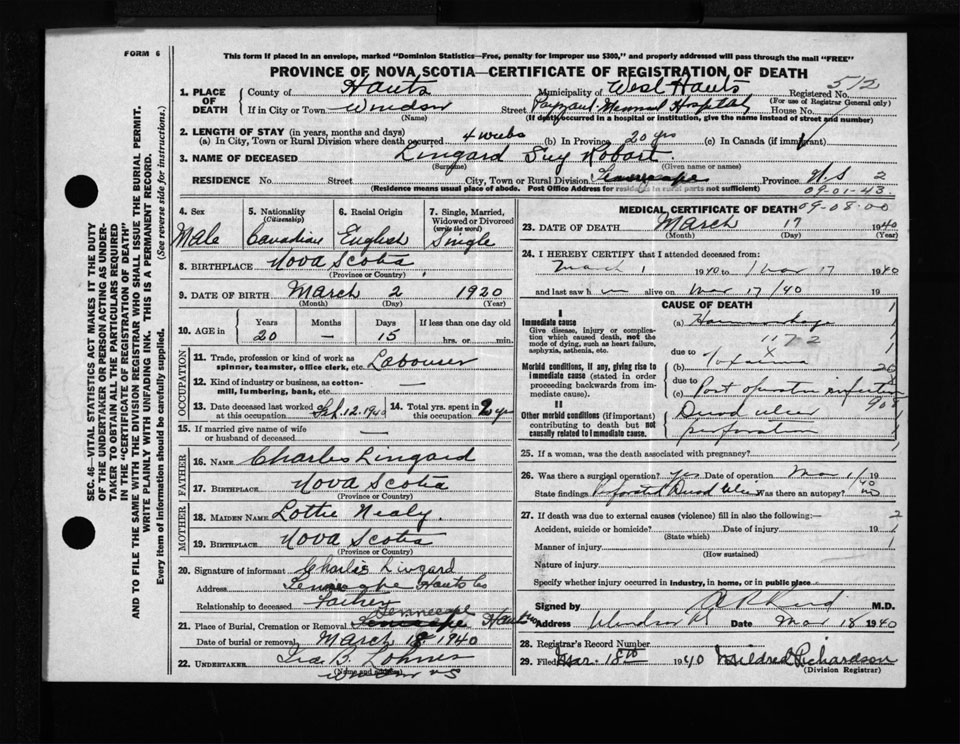 FORM 6
This form if placed in an envelope, marked "Dominion Statistics—Free, penalty for improper use $300," and properly addressed will pass through the mail "FREE"
PROVINCE OF NOVA SCOTIA—CERTIFICATE OF REGISTRATION OF DEATH
SEC. 46—VITAL STATISTICS ACT MAKES IT THE DUTY
OF THE UNDERTAKER OR PERSON ACTING AS UNDER-
TAKER TO OBTAIN ALL THE PARTICULARS REQUIRED
IN THE "CERTIFICATE OF REGISTRATION OF DEATH"
AND TO FILE THE SAME WITH THE DIVISION REGISTRAR WHO SHALL ISSUE THE BURIAL PERMIT.
WRITE PLAINLY WITH UNFADING INK. THIS IS A PERMANENT RECORD.
Every item of information should be carefully supplied. (See reverse side for instructions.)
1. PLACE OF DEATH County of Hants Municipality of West Hants Registered No. 512
(For use of Registrar General only)
If in City or Town Windsor Street Payzant Memorial Hospital House No.
(Name) (If death occurred in a hospital or institution, give the name instead of street and number)
2. LENGTH OF STAY (in years, months and days)
(a) In City, Town or Rural Division where death occurred 4 weeks (b) In Province 20 yrs (c) In Canada (if immigrant)
3. NAME OF DECEASED Lingard Guy Robart
(Surname) (Given name or names)
RESIDENCE No. Street City, Town or Rural Division Province N.S 2
(Residence means usual place of abode. Post Office Address for residents in rural parts not sufficient) 09-01-43
4. Sex Male
5. Nationality (Citizenship) Canadian
6. Racial Origin English
7. Single, Married, Widowed or Divorced (write the word) Single
8. BIRTHPLACE Nova Scotia
(Province or Country)
9. DATE OF BIRTH March 2 1920
(Month) (Day) (Year)
10. AGE in Years 20 Months — Days 15 If less than one day old hrs. or min.
OCCUPATION
11. Trade, profession or kind of work as spinner, teamster, office clerk, etc. Labourer
12. Kind of industry or business, as cotton-mill, lumbering, bank, etc. —
13. Date deceased last worked at this occupation Feb. 12. 1940 14. Total yrs. spent in this occupation 2 yrs
15. If married give name of wife or husband of deceased —
FATHER
16. NAME Charles Lingard
17. BIRTHPLACE Nova Scotia
(Province or Country)
MOTHER
18. MAIDEN NAME Lottie Nealy
19. BIRTHPLACE Nova Scotia
(Province or Country)
20. Signature of informant Charlie Lingard
Address Hants Co
Relationship to deceased Father
21. Place of Burial, Cremation or Removal Tennecape Hants
Date of burial or removal March 18 1940
22. UNDERTAKER Ira B. Lohnes
(Name and address)
Windsor N S
MEDICAL CERTIFICATE OF DEATH 09-08-00
23. DATE OF DEATH March 17 1940
(Month) (Day) (Year)
24. I HEREBY CERTIFY that I attended deceased from:
March 1 1940 to Mar 17 1940
and last saw him alive on Mar 17/40 19
CAUSE OF DEATH
I
Immediate cause
Give disease, injury or complication which caused death, not the mode of dying, such as heart failure, asphyxia, asthenia, etc.
(a) Haemorrhage
1172
due to
(b) Toxaemia
Morbid conditions, if any, giving rise to immediate cause (stated in order proceeding backwards from immediate cause).
due to
(c) Post operative infection
II
Other morbid conditions (if important) contributing to death but not causally related to immediate cause.
Duod ulcer
perforation
25. If a woman, was the death associated with pregnancy?
26. Was there a surgical operation? Yes Date of operation Mar 1 1940
State findings Perforated Duod Ulcer Was there an autopsy? no
27. If death was due to external causes (violence) fill in also the following:—
Accident, suicide or homicide? Date of injury 19
(State which)
Manner of injury
(How sustained)
Nature of injury
Specify whether injury occurred in industry, in home, or in public place
Signed by M.D.
Address Windsor NS Date Mar 18 1940
28. Registrar's Record Number
29. Filed Mar. 18th 1940 Mildred Richardson
(Division Registrar)